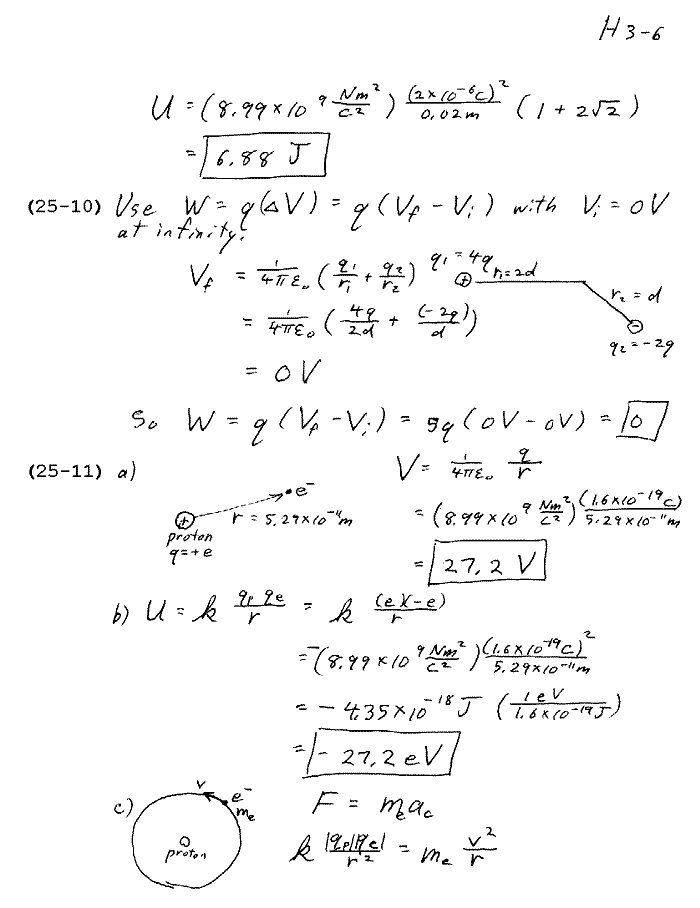 H 3-6
U = (8.99×10⁹ Nm²/C²) (2×10⁻⁶C)²/0.02m (1 + 2√2)
= 6.88 J
(25-10) Use W = q(ΔV) = q(Vf - Vi) with Vi = 0V
at infinity.
Vf = 1/4πε₀ (q₁/r₁ + q₂/r₂)
q₁ = 4q
+
r₁=2d
r₂ = d
-
q₂ = -2q
= 1/4πε₀ (4q/2d + (-2q)/d)
= 0V
So W = q (Vf - Vi) = 5q (0V - 0V) = 0
(25-11) a)
e⁻
+
r = 5.29×10⁻¹¹m
proton
q=+e
V = 1/4πε₀ q/r
= (8.99×10⁹ Nm²/C²) (1.6×10⁻¹⁹C)/5.29×10⁻¹¹m
= 27.2 V
b) U = k qp qe/r = k (e)(-e)/r
= -(8.99×10⁹ Nm²/C²) (1.6×10⁻¹⁹C)²/5.29×10⁻¹¹m
= -4.35×10⁻¹⁸ J (1eV/1.6×10⁻¹⁹J)
= -27.2 eV
c)
v
e⁻
me
proton
F = me ac
k |qp||qe|/r² = me v²/r